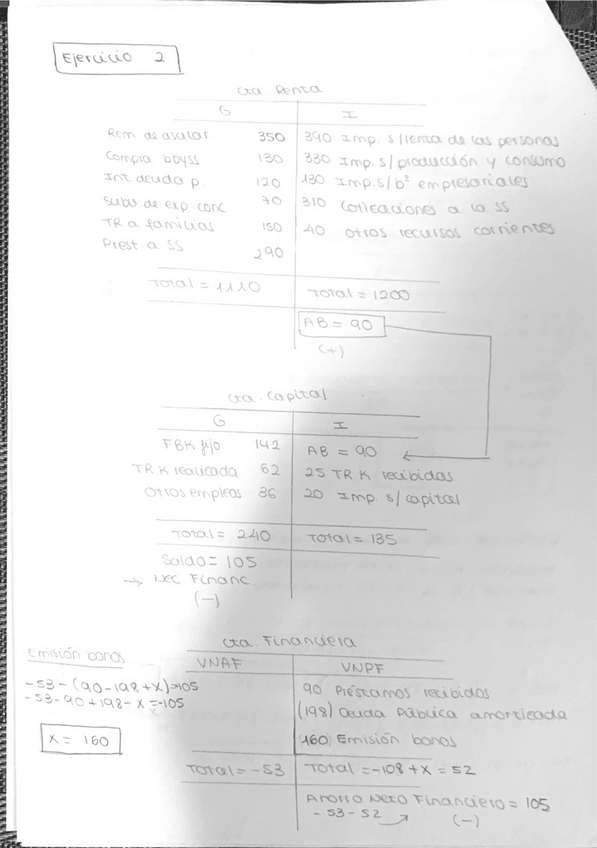 Ejercicio 2
cta. Renta
G I
Rem de asalar 350 390 Imp. s/renta de las personas
Compra bbyss 130 330 Imp. s/producción y consumo
Int deuda p. 120 130 Imp. s/bº empresariales
Subv de exp conc 70 310 Cotizaciones a la SS
TR a familias 150 40 otros recursos corrientes
Prest a SS 290
Total = 1110 Total = 1200
AB = 90
(+)
cta. Capital
G I
FBK f/o 142 AB = 90
TR K realizada 62 25 TR K recibidas
Otros empleos 36 20 Imp s/capital
Total = 240 Total = 135
Saldo = 105
→ Nec Financ.
(-)
cta. Financiera
Emisión bonos
VNAF VNPF
-53-(90-198+x)=-105
-53-90+198-x=-105
x = 160
90 Préstamos recibidos
(198) Deuda Pública amortizada
(160) Emisión bonos
Total = -53 Total = -108 + x = 52
Ahorro Neto Financiero = 105
-53-52 (-)